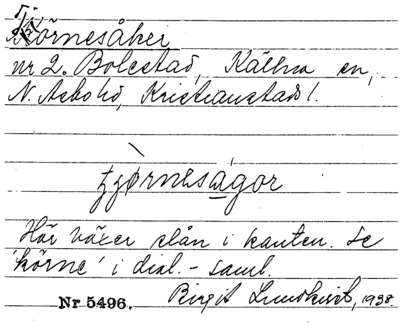 Tjörnesåker
nr 2. Bolestad, Källna sn,
N. Åsbo hd, Kristianstads l.
tjörnesågor
Här växer slån i kanten. Se
'körne' i dial.-saml.
Nr 5496. Birgit Lundkvist, 1938.